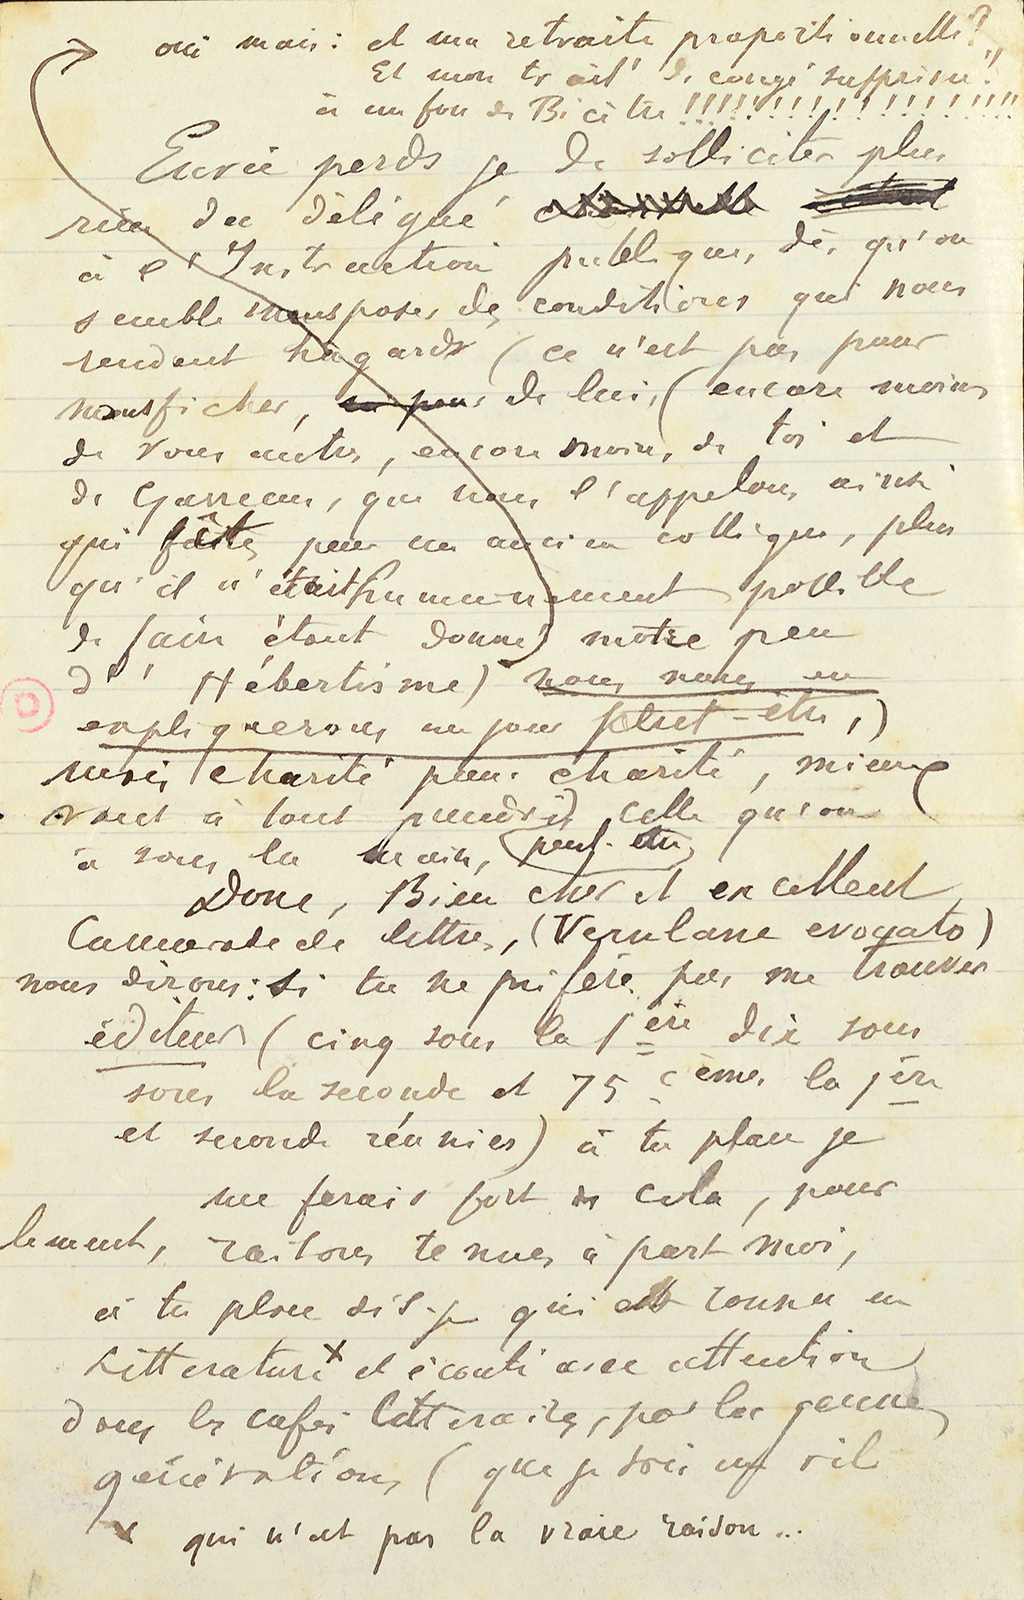 oui mais : et ma retraite proportionnelle ?
Et mon trait' de congé supprimé !!
à un fou de Bicêtre !!!!!!!!!!!!!!!!!!
Envie perds je de solliciter plus
rien du déligué
à l'Instruction publique, dès qu'on
semble nous poser des conditions qui nous
rendent hagards (ce n'est pas pour
nous ficher, de lui, (encore moins
de vous autres, encore moins de toi et
de Garreau, que nous l'appelons ainsi
qui faites pour un ancien collègue, plus
qu'il n'était humainement possible
de faire étant donné notre peu
d'' Hébertisme) nous nous en
expliquerons un jour peut-être,)
mais charité pour charité, mieux
vaut à tout prendre celle qu'on
a sous la main, peut-être
Donc, Bien cher et excellent
Camarade de lettres, (Verulane evocato)
nous dirons : si tu ne préfère pas me trouver
éditeur (cinq sous la 1ère dix sous
sous la seconde et 75 cèmes la 1ère
et seconde réunies) à ta place je
me ferais fort de cela, pour
lement, raisons tenues à part moi,
à ta place dis-je qui est connu en
Litterature x et écouté avec attention
dans les cafés litteraires, par les jeunes
générations (que je sois un vil
x qui n'est pas la vraie raison...